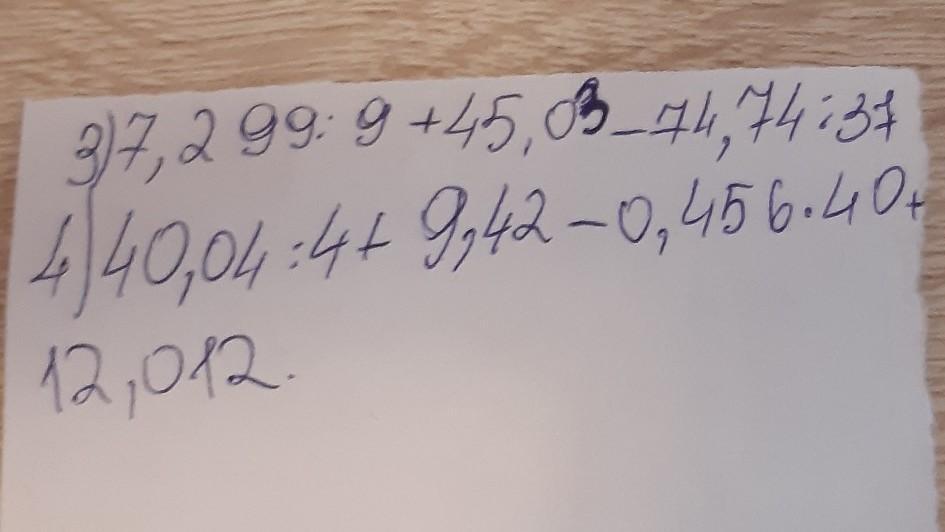 3) 7,299:9+45,03-74,74:37
4) 40,04:4+9,42-0,456·40+
12,012.